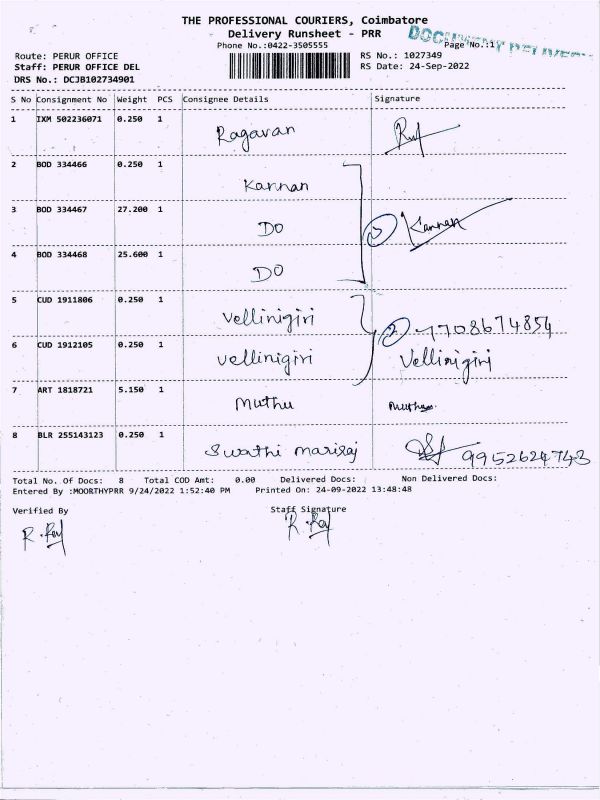 THE PROFESSIONAL COURIERS, Coimbatore
Delivery Runsheet - PRR
DOCUMENT DELIVERED
Phone No.:0422-3505555 Page No.:1
Route: PERUR OFFICE RS No.: 1027349
Staff: PERUR OFFICE DEL RS Date: 24-Sep-2022
DRS No.: DCJB102734901
S No Consignment No Weight PCS Consignee Details Signature
1 IXM 502236071 0.250 1 Ragavan
2 BOD 334466 0.250 1 Kannan
3 BOD 334467 27.200 1 DO 3 Kannan
4 BOD 334468 25.600 1 DO
5 CUD 1911806 0.250 1 Vellinigiri 2 7708674854
6 CUD 1912105 0.250 1 Vellinigiri Vellinigiri
7 ART 1818721 5.150 1 Muthu Muthu
8 BLR 255143123 0.250 1 Swathi 9952624743
Total No. Of Docs: 8 Total COD Amt: 0.00 Delivered Docs: Non Delivered Docs:
Entered By :MOORTHYPRR 9/24/2022 1:52:40 PM Printed On: 24-09-2022 13:48:48
Verified By Staff Signature